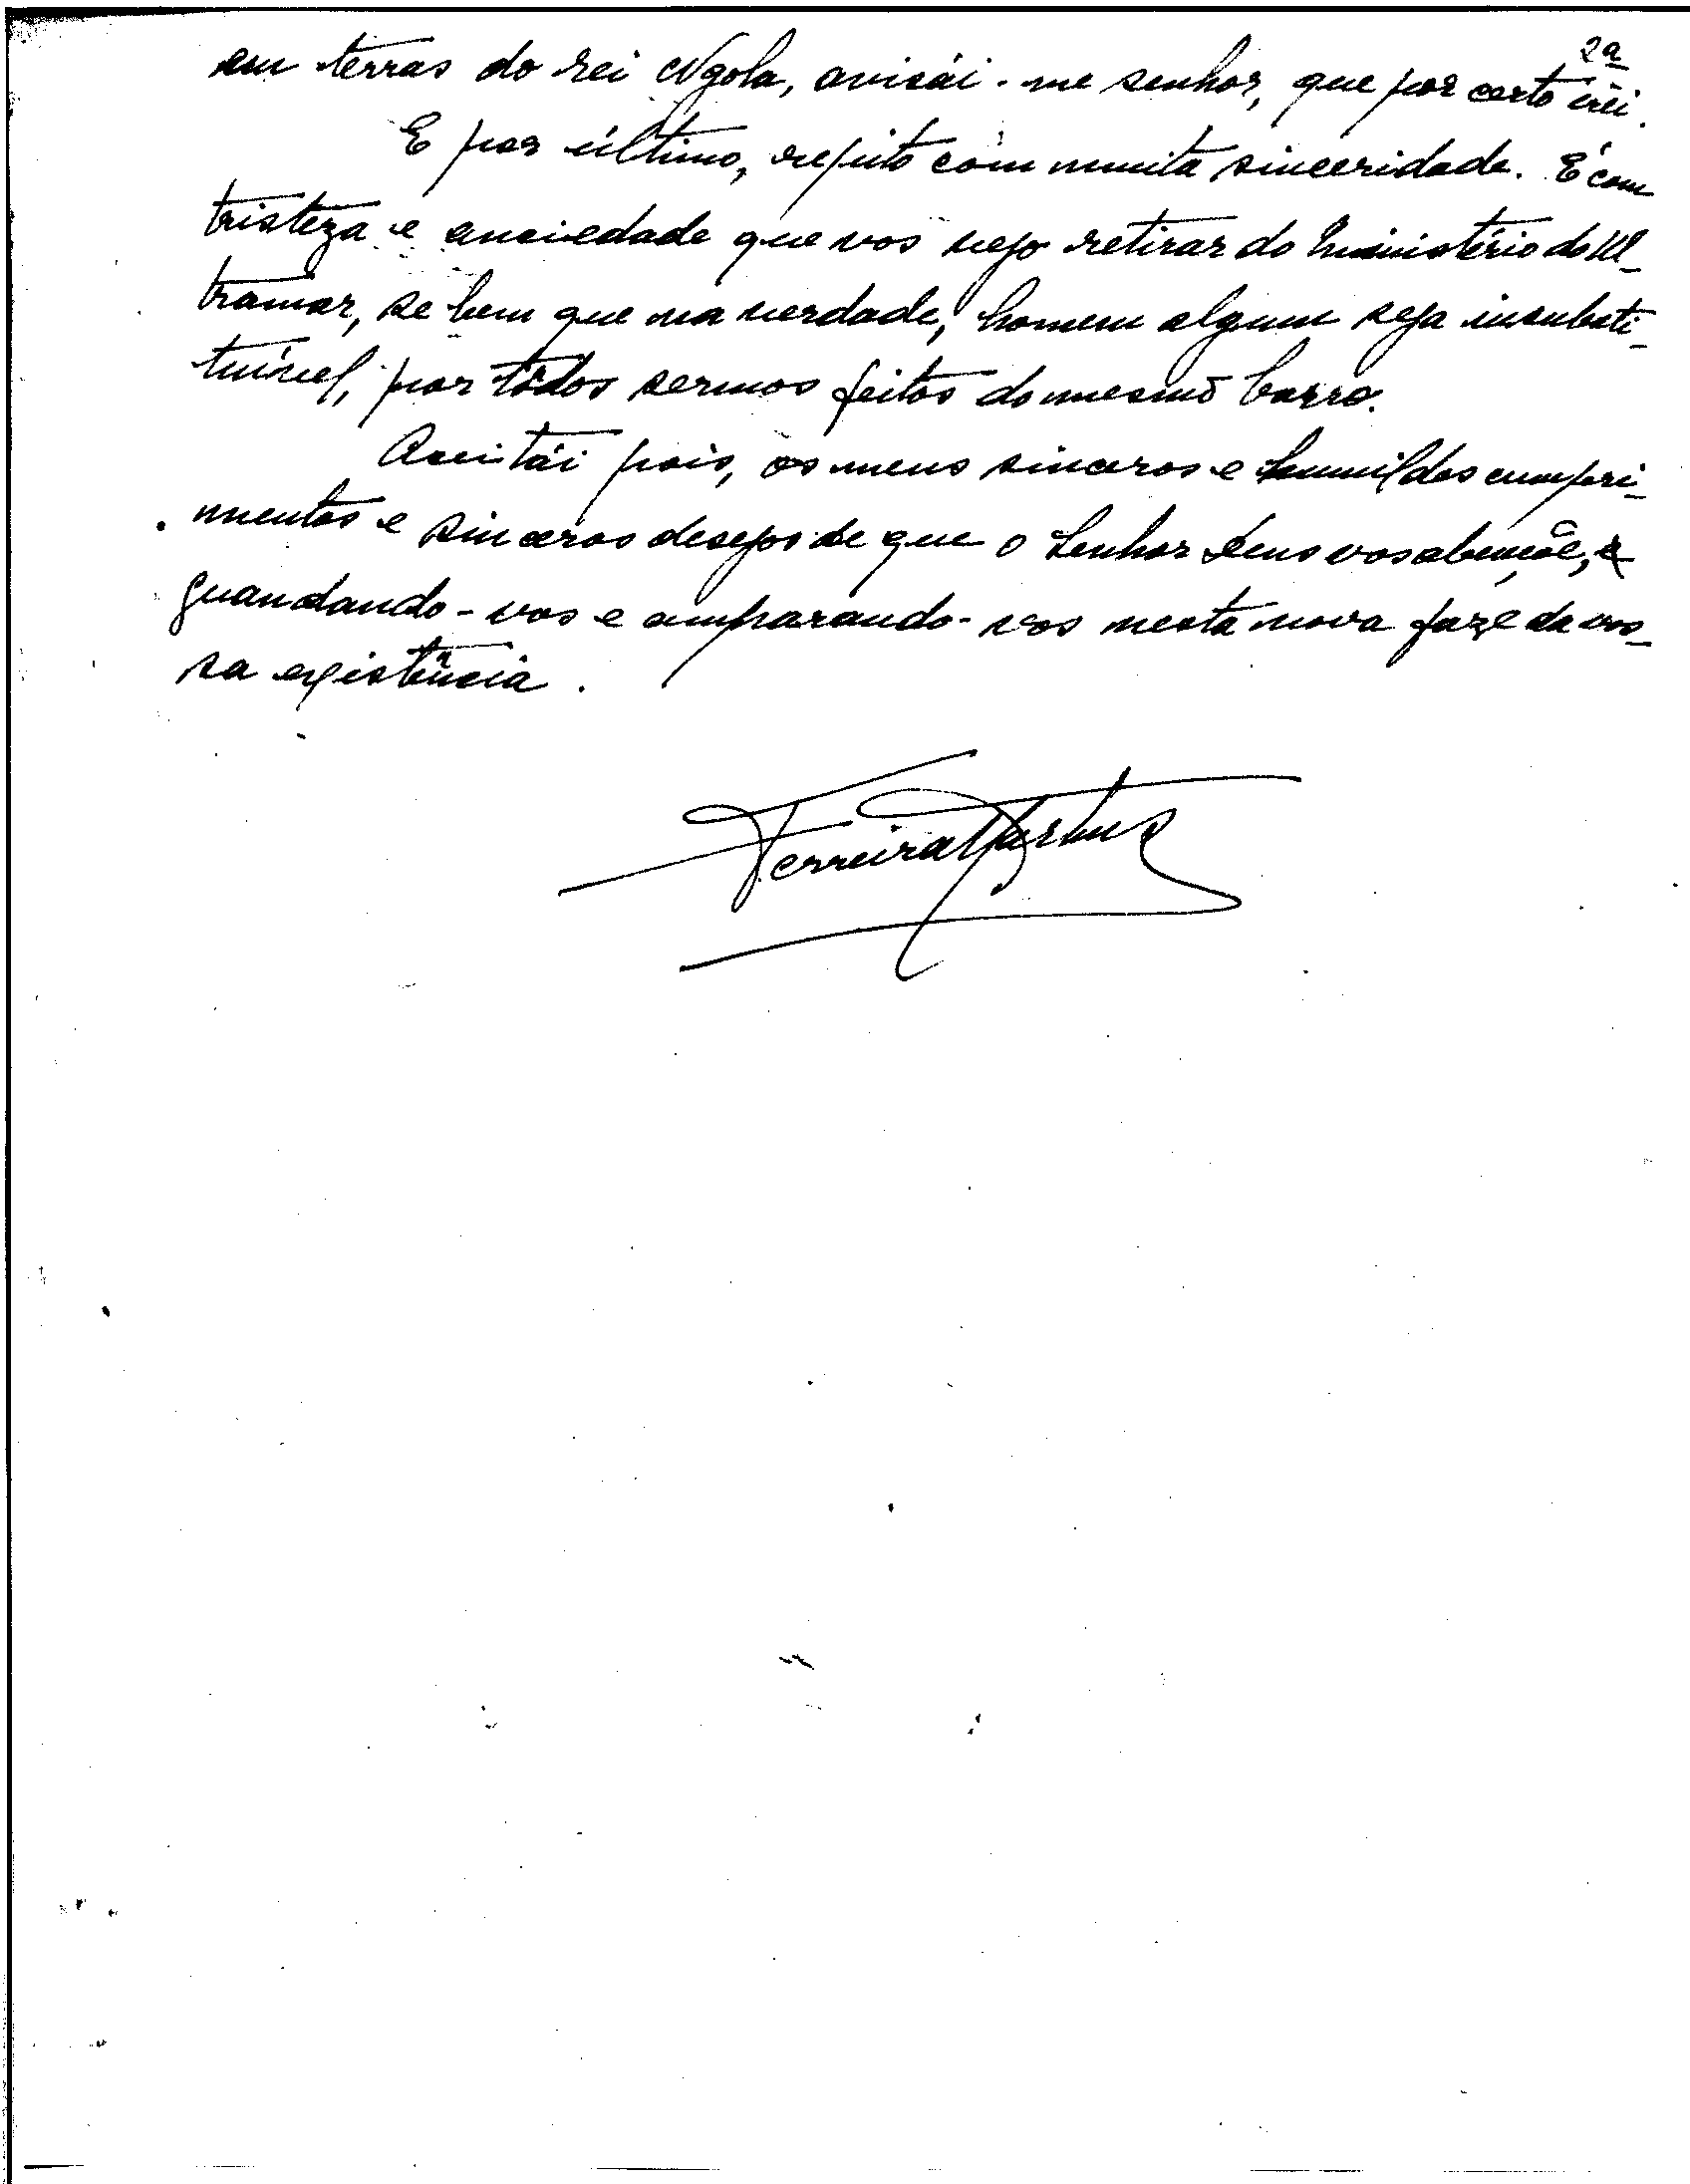 2ª
em terras do rei Ngola, avisái-me senhor, que por certo irei.
E por último, repito com muita sinceridade. É com
tristeza e anciedade que vos vejo retirar do Ministério do Ul-
tramar, se bem que na verdade, homem algum seja insubsti-
tuível, por todos sermos feitos do mesmo barro.
Aceitái pois, os meus sinceros e humildes cumpri-
mentos e sinceros desejos de que o Senhor Deus vos abençõe,
guardando-vos e amparando-vos nesta nova faze da vos-
sa existência.
Ferreira Martins